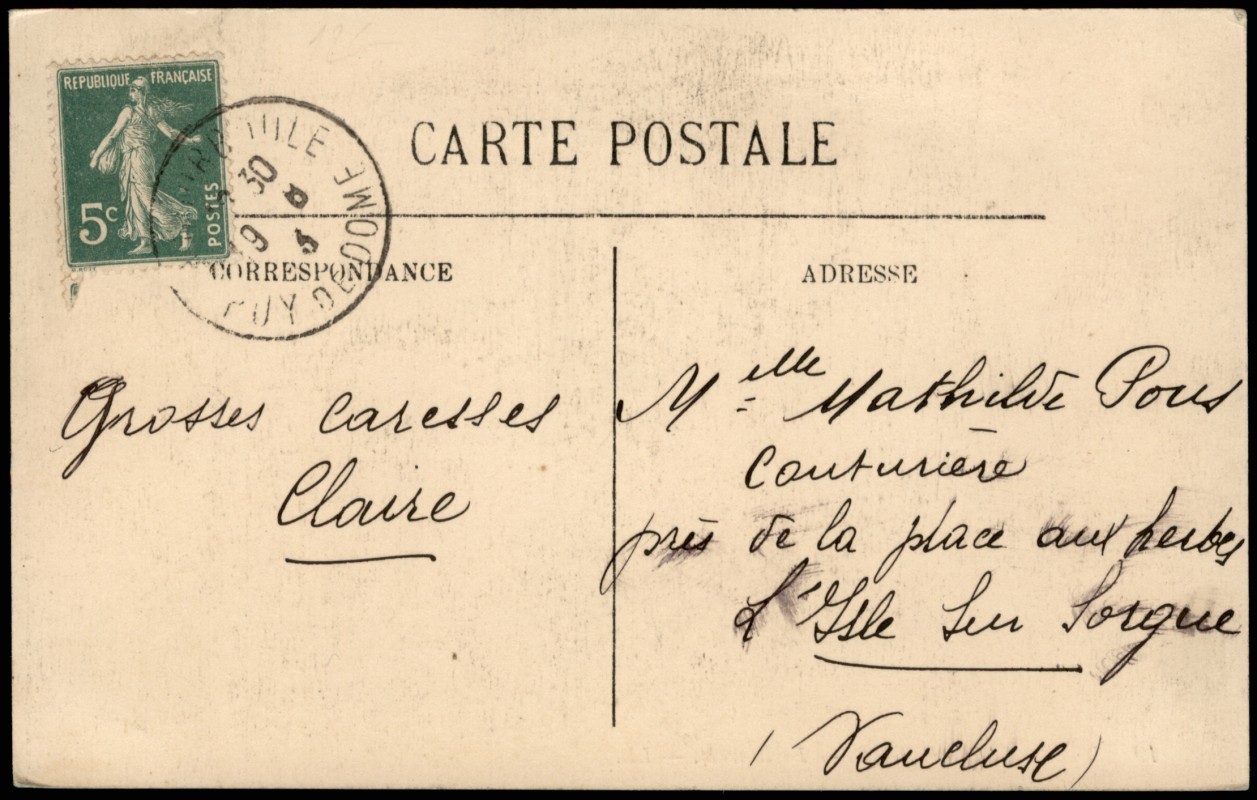 REPUBLIQUE FRANÇAISE
5c
POSTES
PUY-DE-DOME
30
19
CARTE POSTALE
CORRESPONDANCE
ADRESSE
Grosses caresses
Claire
Melle Mathilde Pous
Couturière
près de la place aux herbes
L'Isle Sur Sorgue
(Vaucluse)